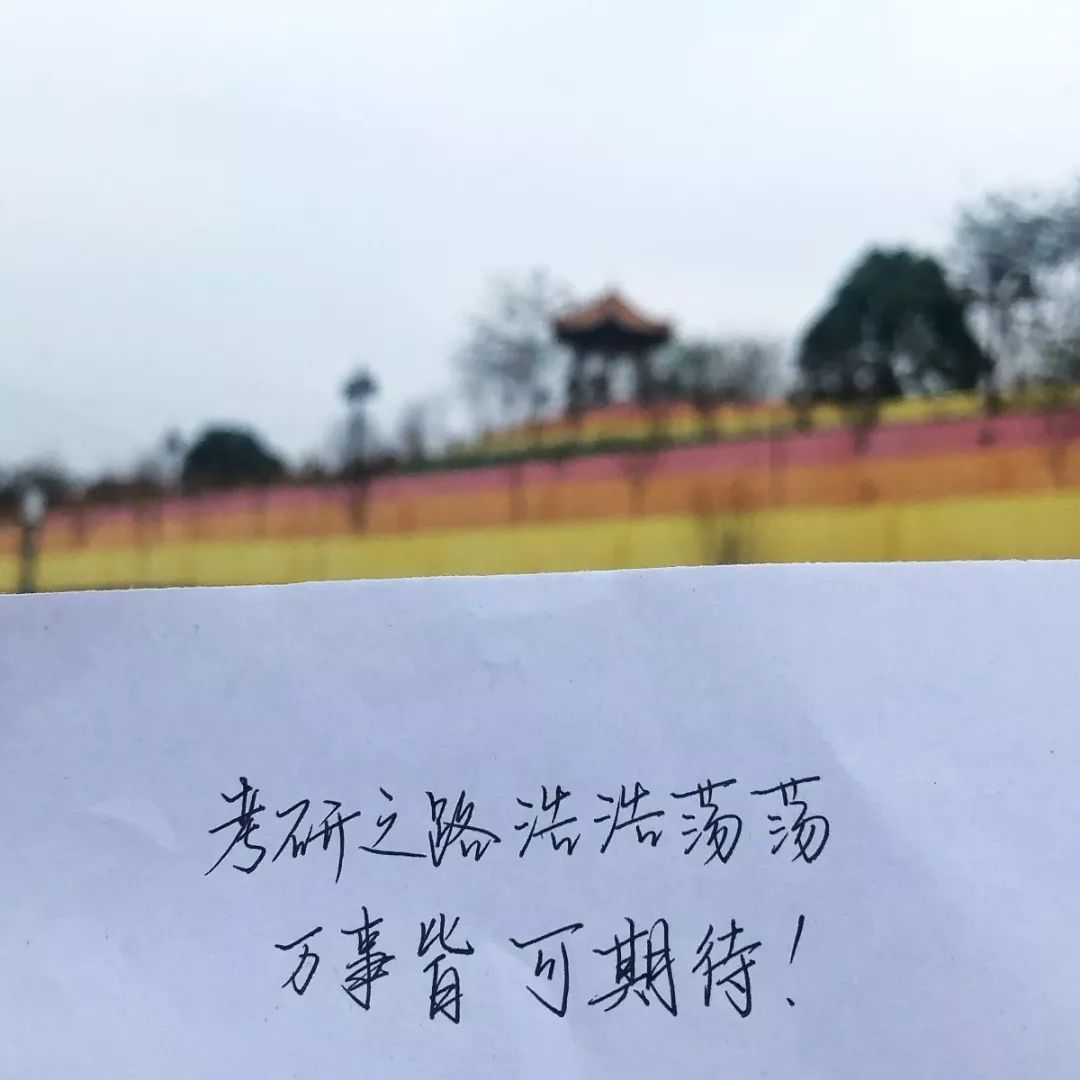 考研之路浩浩荡荡
万事皆可期待!